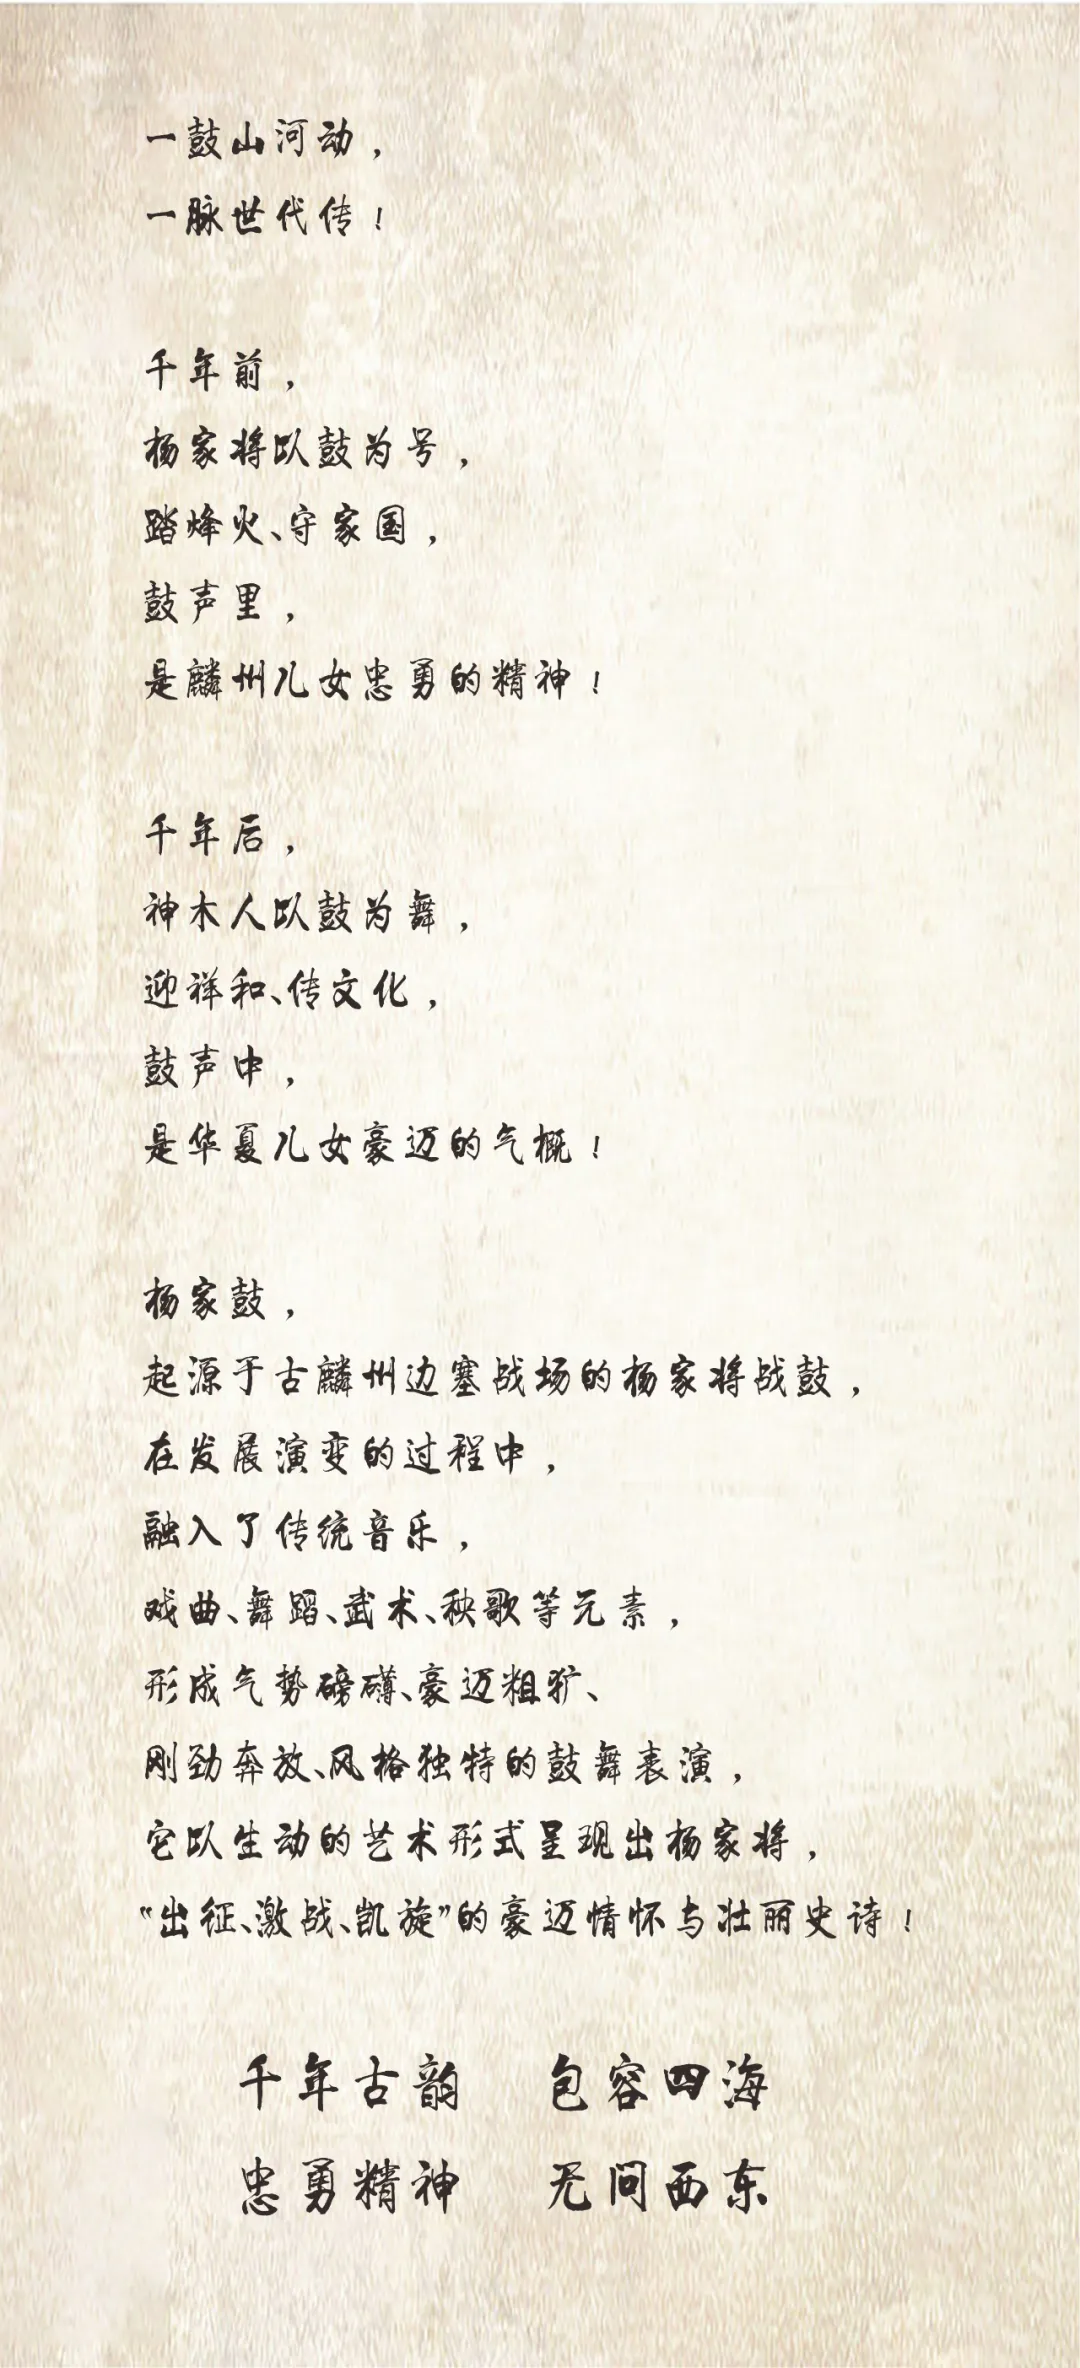 一鼓山河动，
一脉世代传！
千年前，
杨家将以鼓为号，
踏烽火、守家国，
鼓声里，
是麟州儿女忠勇的精神！
千年后，
神木人以鼓为舞，
迎祥和、传文化，
鼓声中，
是华夏儿女豪迈的气概！
杨家鼓，
起源于古麟州边塞战场的杨家将战鼓，
在发展演变的过程中，
融入了传统音乐，
戏曲、舞蹈、武术、秧歌等元素，
形成气势磅礴、豪迈粗犷、
刚劲奔放、风格独特的鼓舞表演，
它以生动的艺术形式呈现出杨家将，
“出征、激战、凯旋”的豪迈情怀与壮丽史诗！
千年古韵 包容四海
忠勇精神 无问西东